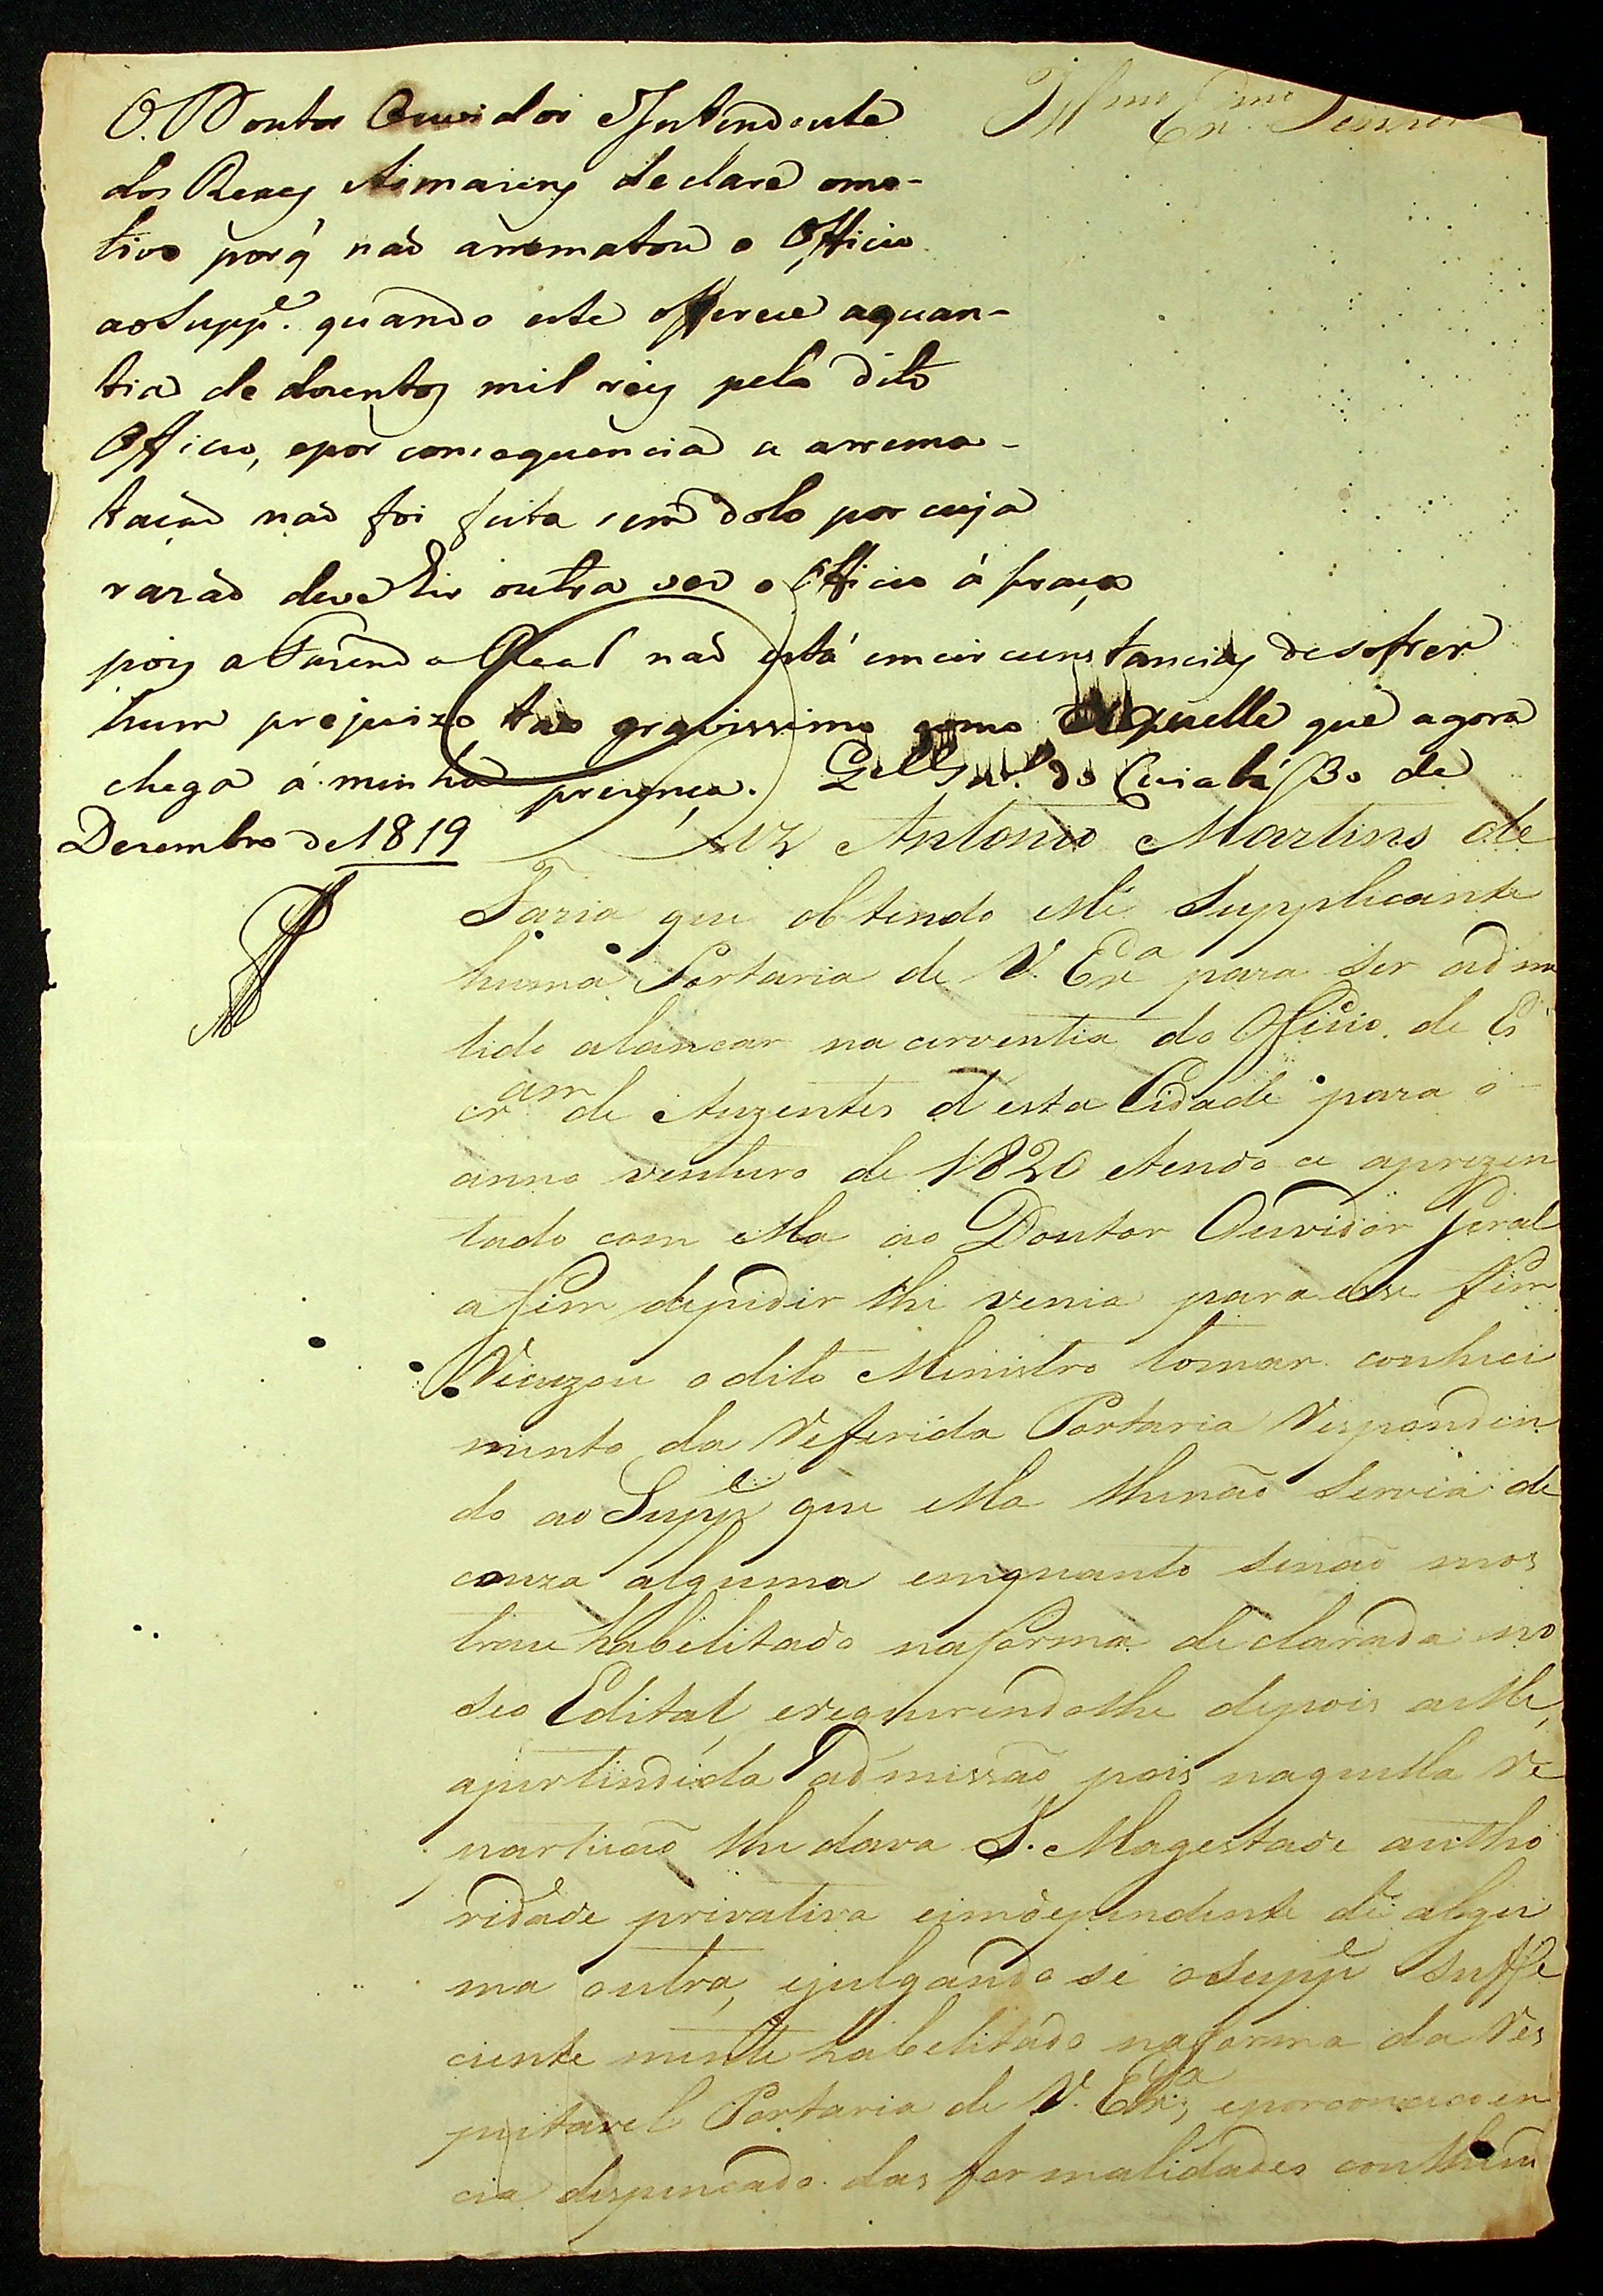 Ill.mo Ex.mo Senhor
O Doutor Ouvidor Intendente
dos Reaes Armazens declare omo-
tivo porq̃ naõ arrematou o Officio
aoSupp.e quando este offerece aquan-
tia de dozentos mil reis pelo dito
Officio, epor consequencia a arrema-
taçaõ naõ foi feita sem dolo por cuja
razaõ deve hir outra vez o Officio á praça
pois a Fazenda Real naõ está emcircunstancias desofrer
hum prejuizo taõ gravissimo como daquelle que agora
chega á minha prezença. do Cuiabá 30 de
Dezembro de 1819
Diz Antonio Martins de
Faria que obtendo elle Supplicante
huma Portaria de V. Ex.a para ser admi
tido alançar na cerventia do Oficio de Es
cr.am de Auzentes d'esta Cidade para o
anno venturo de 1820 etendo ce aprezen
tado com ella ao Doutor Ouvidor Geral
afim depedir lhe venia para esse fim
Recuzou odito Ministro tomar conheci
mento da Referida Portaria Responden
do ao Supp.e que ella lhenaõ servia de
couza alguma emquanto senaõ mos
trace habelitado naforma declarada no
seo Edital, erequerendolhe depois aelle,
apertindida admissaõ, pois naquella Re
particaõ lhe dava S. Magestade autho
ridade privativa eindependente de algu
ma outra, ejulgando se oSupp.e suffi
ciente mente habelitado naforma da Res
peitavel Portaria de V. Ex.ca, eporconcecoen
cia despençado das formalidades contheud